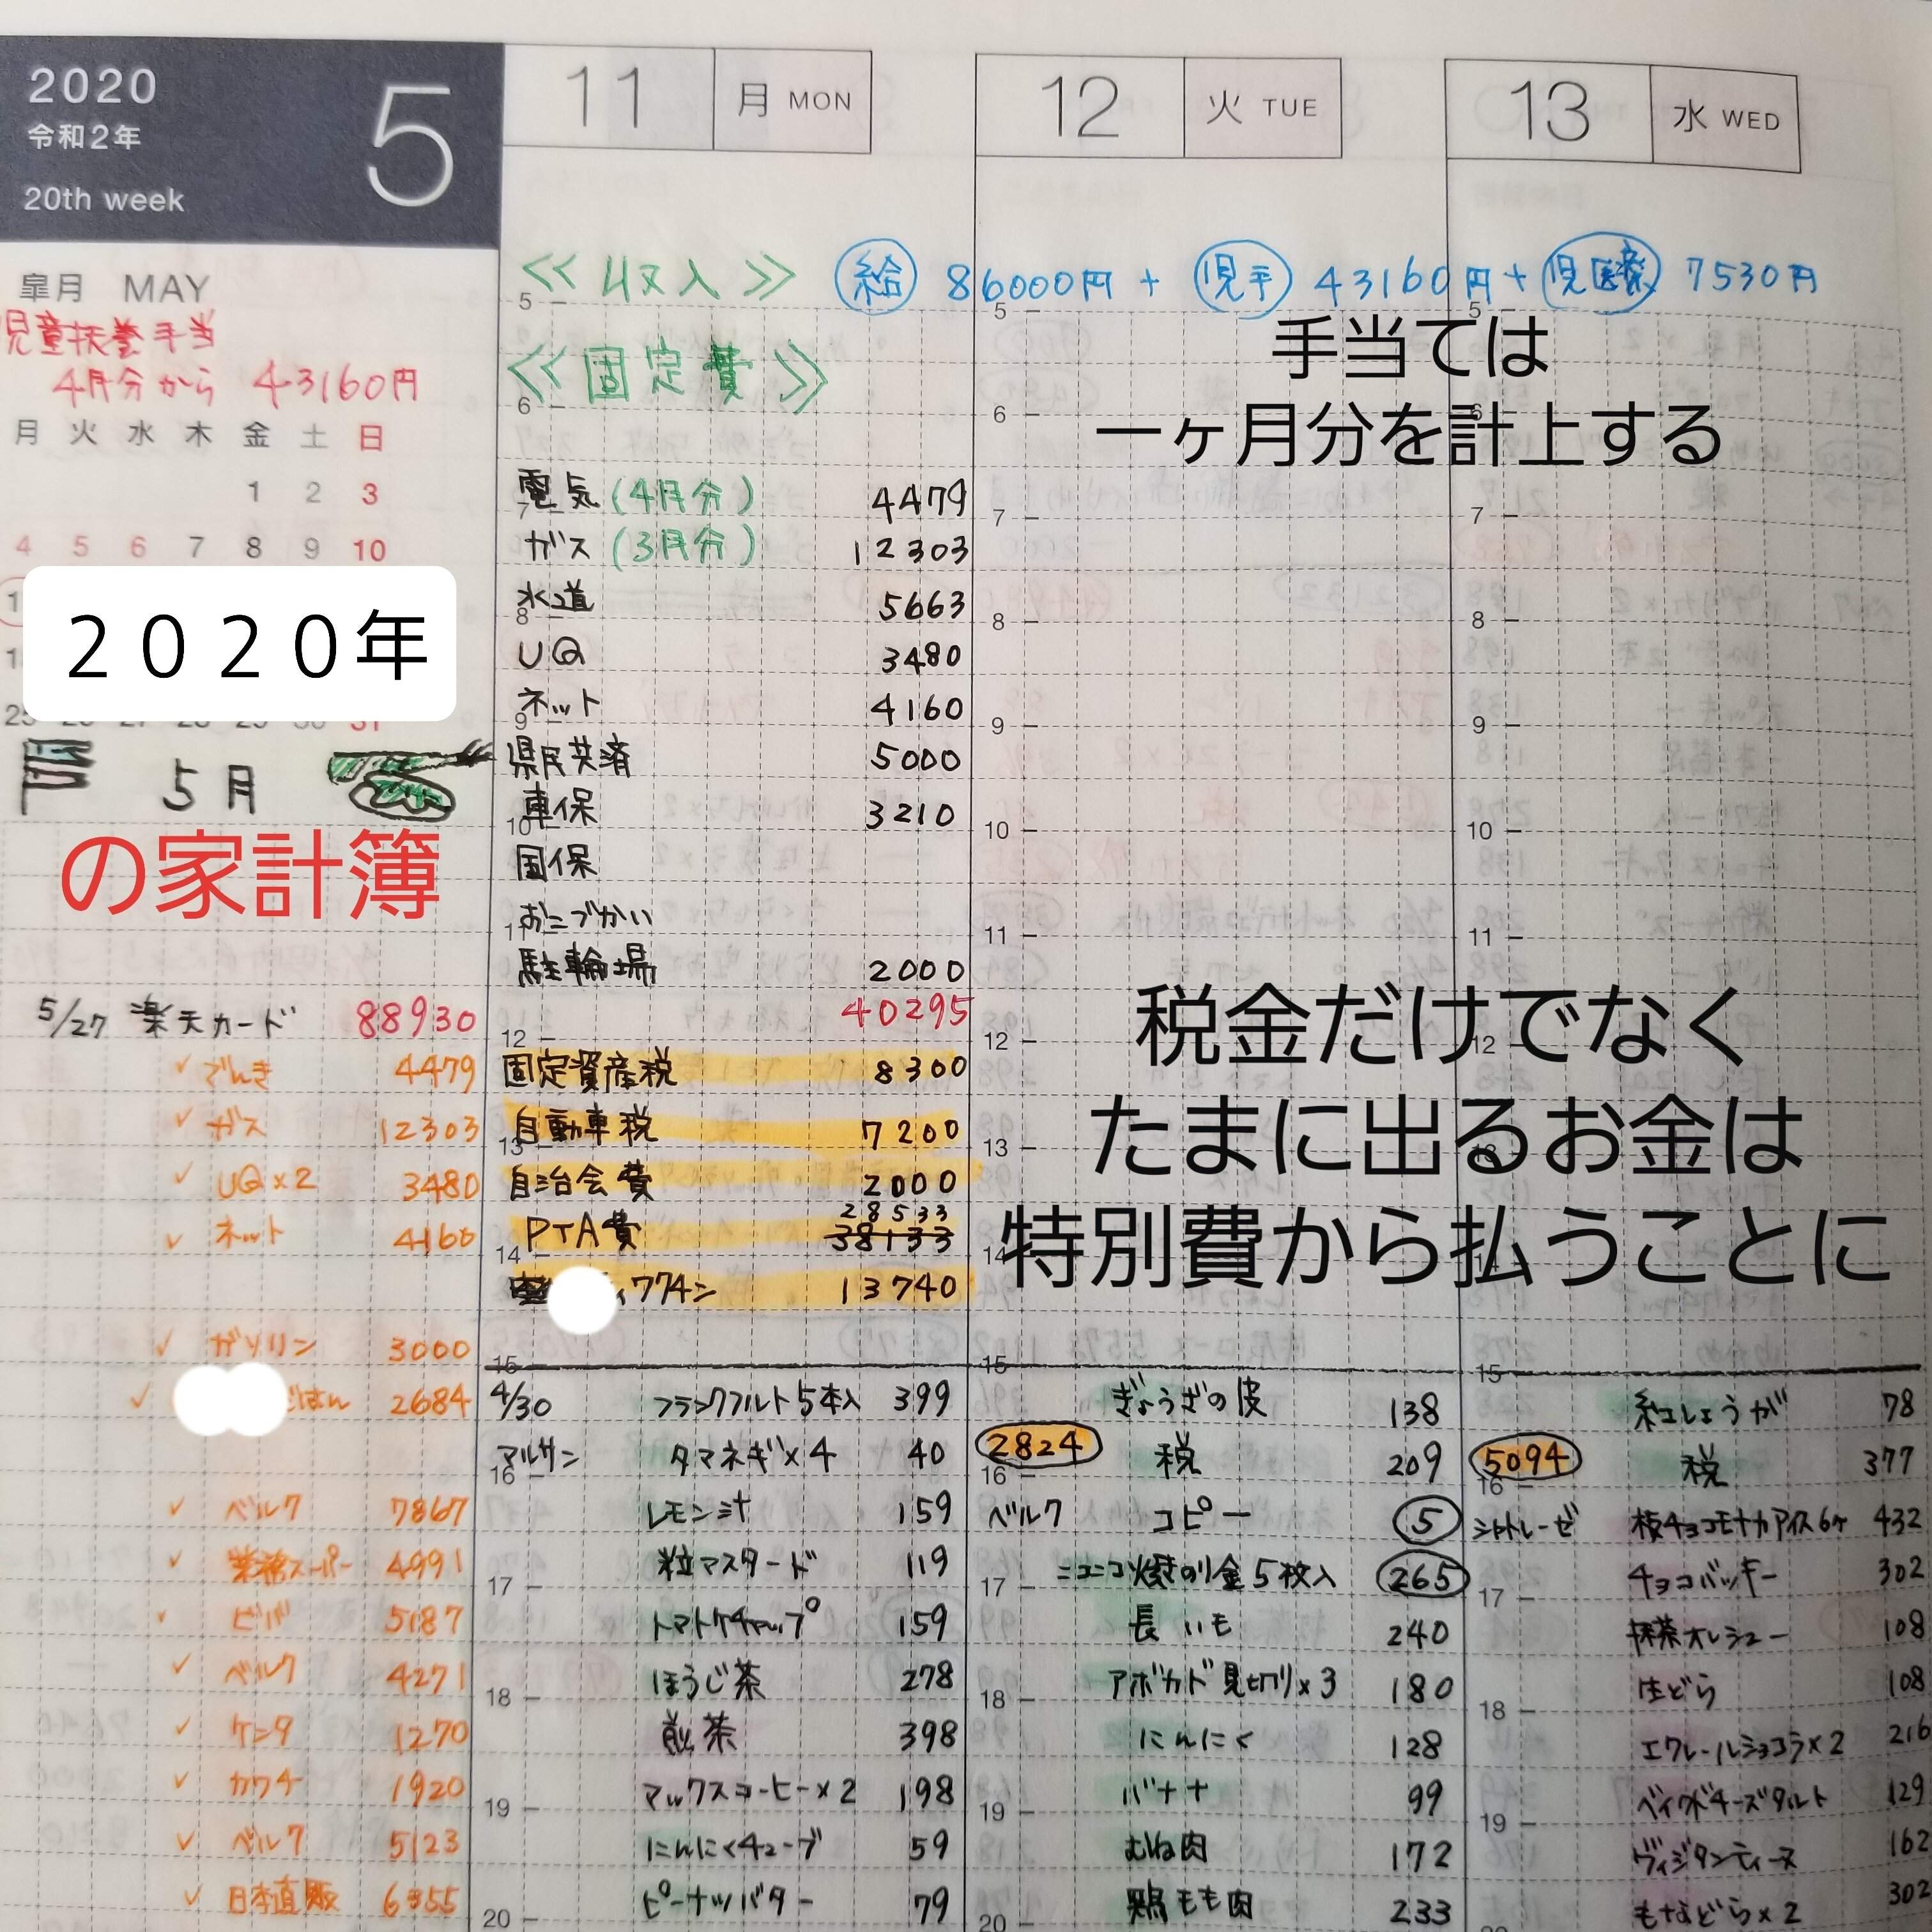 2020
令和2年
5
20th week
皐月 MAY
児童扶養手当
4月分から 43160円
月 火 水 木 金 土 日
1 2 3
4 5 6 7 8 9 10
2020年
25 26 27 28 29 30 31
5月
の家計簿
5/27 楽天カード 88930
✓ でんき 4479
✓ ガス 12303
✓ UQ×2 3480
✓ ネット 4160
✓ ガソリン 3000
✓ ごはん 2684
✓ ベルク 7867
✓ 業務スーパー 4991
✓ ビバ 5187
✓ ベルク 4271
✓ ケンタ 1270
✓ カワチ 1920
✓ ベルク 5123
✓ 日本直販
11 月 MON
12 火 TUE
13 水 WED
<<収入>> 給 86000円 + 児手 43160円 + 児医療 7530円
手当ては
一ヶ月分を計上する
<<固定費>>
電気(4月分) 4479
ガス(3月分) 12303
水道 5663
UQ 3480
ネット 4160
県民共済 5000
車保 3210
国保
おこづかい
駐輪場 2000
40295
固定資産税 8300
自動車税 7200
自治会費 2000
28533
PTA費 38133
ワクチン 13740
税金だけでなく
たまに出るお金は
特別費から払うことに
4/30 フランクフルト5本入 399
マルサン タマネギ×4 40
レモン汁 159
粒マスタード 119
トマトケチャップ 159
ほうじ茶 278
煎茶 398
マックスコーヒー×2 198
にんにくチューブ 59
ピーナッツバター 79
ぎょうざの皮 138
2824 税 209
ベルク コピー 5
ニコニコ焼きのり金5枚入 265
長いも 240
アボカド見切り×3 180
にんにく 128
バナナ 99
むね肉 172
鶏もも肉 233
紅しょうが 78
5094 税 377
シャトレーゼ 板チョコモナカアイス6ヶ 432
チョコバッキー 302
抹茶オレシュー 108
生どら 108
エクレールショコラ×2 216
ベイクドチーズタルト 129
162
もなどら×2 302
5 6 7 8 9 10 11 12 13 14 15 16 17 18 19 20
5 6 7 8 9 10 11 12 13 14 15 16 17 18 19 20
5 6 7 8 9 10 11 12 13 15 16 17 18 19